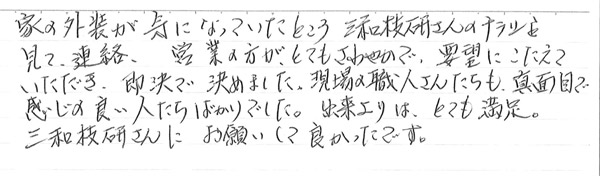 家の外装が気になっていたところ 三和技研さんのチラシを
見て、連絡、 営業の方がとてもさわやかで、要望にこたえて
いただき、即決で決めました。現場の職人さんたちも、真面目で
感じの良い人たちばかりでした。出来上りは、とても満足。
三和技研さんに お願いして良かったです。